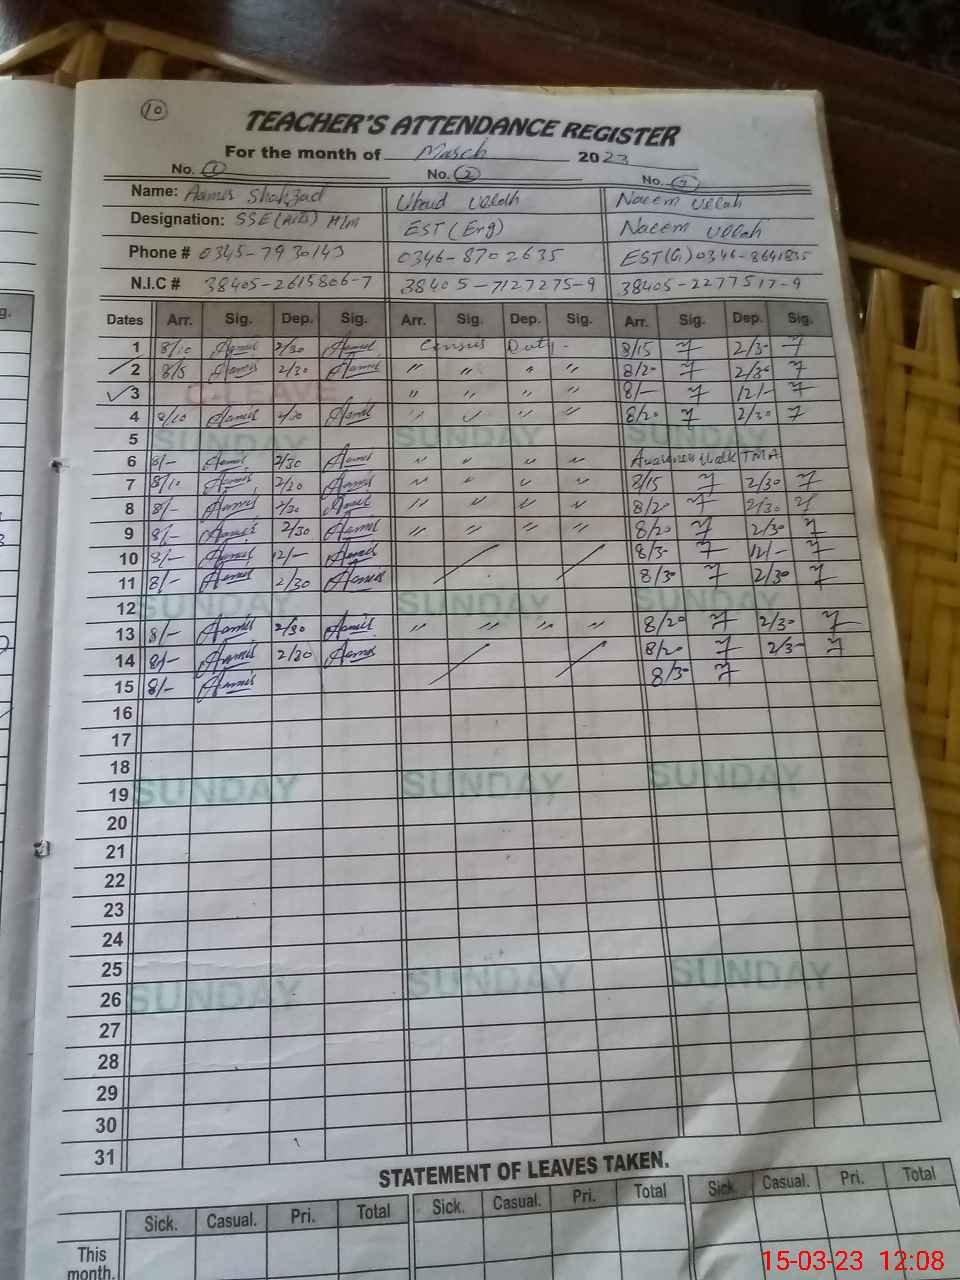 10
TEACHER'S ATTENDANCE REGISTER
For the month of March 2023
No. 1 No. 2 No.
Name: Aamir Shahzad Ubaid Ullah Naeem Ullah
Designation: SSE (Arts) H/m EST (Eng) Naeem Ullah
Phone # 0345-7930143 0346-8702635 EST(G) 0346-8641835
N.I.C # 38405-2615806-7 38405-7127275-9 38405-2277517-9
Dates Arr. Sig. Dep. Sig. Arr. Sig. Dep. Sig. Arr. Sig. Dep. Sig.
1 8/10 Aamir 2/30 Aamir Census Duty - 8/15 2/30
2 8/5 Aamir 2/30 Aamir " " " " 8/20 2/30
3 C-LEAVE " " " " 8/- 12/-
4 8/10 Aamir 2/30 Aamir " " " " 8/20 2/30
5 SUNDAY SUNDAY SUNDAY
6 8/- Aamir 2/30 Aamir " " " " Awareness Walk TMA
7 8/10 Aamir 2/30 Aamir " " " " 8/15 2/30
8 8/- Aamir 2/30 Aamir " " " " 8/20 2/30
9 8/- Aamir 2/30 Aamir " " " " 8/20 2/30
10 8/- Aamir 12/- Aamir 8/30 12/-
11 8/- Aamir 2/30 Aamir 8/30 2/30
12 SUNDAY SUNDAY SUNDAY
13 8/- Aamir 2/30 Aamir " " " " 8/20 2/30
14 8/- Aamir 2/30 Aamir 8/20 2/30
15 8/- Aamir 8/30
16
17
18
19 SUNDAY SUNDAY SUNDAY
20
21
22
23
24
25
26 SUNDAY SUNDAY SUNDAY
27
28
29
30
31
STATEMENT OF LEAVES TAKEN.
Sick. Casual. Pri. Total Sick. Casual. Pri. Total Sick. Casual. Pri. Total
This
month.
15-03-23 12:08